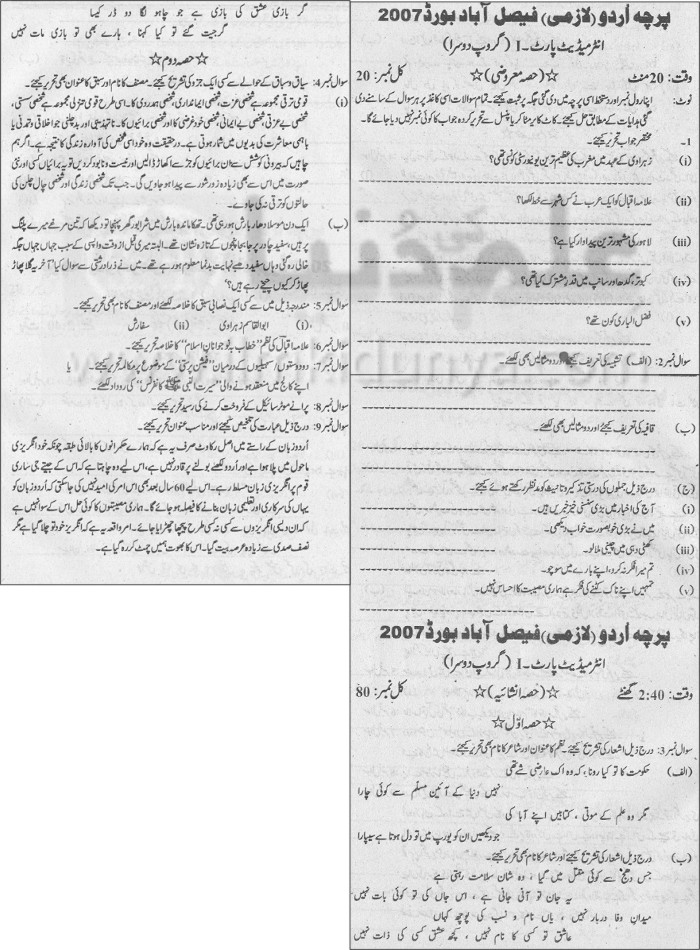 پرچہ اُردو (لازمی) فیصل آباد بورڈ 2007
انٹرمیڈیٹ پارٹ۔I (گروپ دوسرا)
وقت: 20 منٹ ☆(حصہ معروضی)☆ کل نمبر: 20
نوٹ: اپنا رول نمبر اور دستخط اسی پرچہ میں دی گئی جگہ پر ثبت کیجئے۔ تمام سوالات اسی کاغذ پر ہر سوال کے سامنے دی
گئی ہدایات کے مطابق حل کیجئے۔ کاٹ کر یا مٹا کر یا پنسل سے تحریر کردہ جواب کا کوئی نمبر نہیں دیا جائے گا۔
1۔ مختصر جواب تحریر کیجئے۔
(i) زہراوی کے عہد میں مغرب کی عظیم ترین یونیورسٹی کونسی تھی؟
(ii) علامہ اقبال کو ایک عرب نے کس شہر سے خط لکھا؟
(iii) لاہور کی مشہور ترین پیداوار کیا ہے؟
(iv) کبوتر، گدھ اور سانپ میں قدرِ مشترک کیا تھی؟
(v) فضل الباری کون تھے؟
سوال نمبر 2: (الف) تشبیہ کی تعریف کیجئے اور دو مثالیں بھی لکھئے۔
(ب) قافیہ کی تعریف کیجئے اور دو مثالیں بھی لکھئے۔
(ج) درج ذیل جملوں کی درستی تذکیر و تانیث کو مدِنظر رکھتے ہوئے کیجئے۔
(i) آج کی اخبار میں بڑی سنسنی خیز خبریں ہیں۔
(ii) میں نے بڑی خوبصورت خواب دیکھی۔
(iii) کھٹی دہی میں چینی ملا لو۔
(iv) تم میرا فکر نہ کرو، اپنے بارے میں سوچو۔
(v) تمہیں اپنے ناک کٹنے کی فکر ہے ہماری مصیبت کا احساس نہیں۔
پرچہ اُردو (لازمی) فیصل آباد بورڈ 2007
انٹرمیڈیٹ پارٹ۔I (گروپ دوسرا)
وقت: 2:40 گھنٹے ☆(حصہ انشائیہ)☆ کل نمبر: 80
☆حصہ اوّل☆
سوال نمبر 3: درج ذیل اشعار کی تشریح کیجئے۔ نظم کا عنوان اور شاعر کا نام بھی تحریر کیجئے۔
(الف) حکومت کا تو کیا رونا، کہ وہ اک عارضی شے تھی
نہیں دنیا کے آئین مسلّم سے کوئی چارا
مگر وہ علم کے موتی، کتابیں اپنے آبا کی
جو دیکھیں ان کو یورپ میں تو دل ہوتا ہے سیپارا
(ب) درج ذیل اشعار کی تشریح کیجئے اور شاعر کا نام بھی تحریر کیجئے۔
جس دھج سے کوئی مقتل میں گیا، وہ شان سلامت رہتی ہے
یہ جان تو آنی جانی ہے، اس جاں کی تو کوئی بات نہیں
میدانِ وفا دربار نہیں، یاں نام و نسب کی پوچھ کہاں
عاشق تو کسی کا نام نہیں، کچھ عشق کسی کی ذات نہیں
گر بازی عشق کی بازی ہے جو چاہو لگا دو ڈر کیسا
گر جیت گئے تو کیا کہنا، ہارے بھی تو بازی مات نہیں
☆حصہ دوم☆
سوال نمبر 4: سیاق و سباق کے حوالے سے کسی ایک جزو کی تشریح کیجئے۔ مصنف کا نام اور سبق کا عنوان بھی تحریر کیجئے۔
(i) قومی ترقی مجموعہ ہے شخصی عزت، شخصی ایمانداری، شخصی ہمدردی کا۔ اسی طرح قومی تنزلی مجموعہ ہے شخصی سستی،
شخصی بے عزتی، شخصی بے ایمانی، شخصی خودغرضی کا اور شخصی برائیوں کا۔ ناتہذیبی اور بدچلنی جو اخلاقی و تمدنی یا
باہمی معاشرت کی بدیوں میں شمار ہوتی ہے۔ درحقیقت وہ خود اسی شخص کی آوارہ زندگی کا نتیجہ ہے۔ اگر ہم
چاہیں کہ بیرونی کوشش سے ان برائیوں کو جڑ سے اکھاڑ ڈالیں اور نیست و نابود کردیں تو یہ برائیاں کسی اور نئی
صورت میں اس سے بھی زیادہ زور شور سے پیدا ہوجاویں گی۔ جب تک شخصی زندگی اور شخصی چال چلن کی
حالتوں کو ترقی نہ کی جاوے۔
(ب) ایک دن موسلا دھار بارش ہو رہی تھی۔ تھکا ماندہ بارش میں شرابور گھر پہنچا تو دیکھا کہ تین مرغے میرے پلنگ
پر ہیں، سفید چادر پر جابجا پنجوں کے تازہ نشان تھے۔ البتہ میری قبل از وقت واپسی کے سبب جہاں جہاں جگہ
خالی رہ گئی وہاں سفید دھبے نہایت بدنما معلوم ہو رہے تھے۔ میں نے ذرا درشتی سے سوال کیا "آخر یہ گلا پھاڑ
پھاڑ کر کیوں چیخ رہے ہیں؟"
سوال نمبر 5: مندرجہ ذیل میں سے کسی ایک نصابی سبق کا خلاصہ لکھئے اور مصنف کا نام بھی تحریر کیجئے۔
(i) ابوالقاسم زہراوی (ii) سفارش
سوال نمبر 6: علامہ اقبال کی نظم "خطاب بہ نوجوانانِ اسلام" کا خلاصہ تحریر کیجئے۔
سوال نمبر 7: دو دوستوں/سہیلیوں کے درمیان "فیشن پرستی" کے موضوع پر مکالمہ تحریر کیجئے۔ یا
اپنے کالج میں منعقد ہونے والی "سیرت النبی ﷺ کانفرنس" کی روداد لکھئے۔
سوال نمبر 8: پرانے موٹر سائیکل کے فروخت کرنے کی رسید تحریر کیجئے۔
سوال نمبر 9: درج ذیل عبارت کی تلخیص کیجئے اور مناسب عنوان تحریر کیجئے۔
اُردو زبان کے راستے میں اصل رکاوٹ صرف یہ ہے کہ ہمارے حکمرانوں کا بالائی طبقہ چونکہ خود انگریزی
ماحول میں پلا ہوا ہے اور اُردو لکھنے بولنے پر قادر نہیں ہے، اس لیے وہ چاہتا ہے کہ اس کے جیتے جی ساری
قوم پر انگریزی زبان مسلط رہے۔ اس لیے 60 سال بعد بھی اس امر کی امید نہیں کی جاسکتی کہ اُردو زبان کو
یہاں کی سرکاری اور تعلیمی زبان بنانے کا فیصلہ ہوجائے گا۔ ہماری مصیبتوں کا کوئی حل اس کے سوا نہیں ہے
کہ ان دیسی انگریزوں سے کسی نہ کسی طرح پیچھا چھڑایا جائے۔ امر واقعہ یہ ہے کہ انگریز خود تو چلا گیا ہے مگر
نصف صدی سے زیادہ عرصہ بیت گیا۔ اس کا بھوت ہمیں چمٹ کر رہ گیا ہے۔